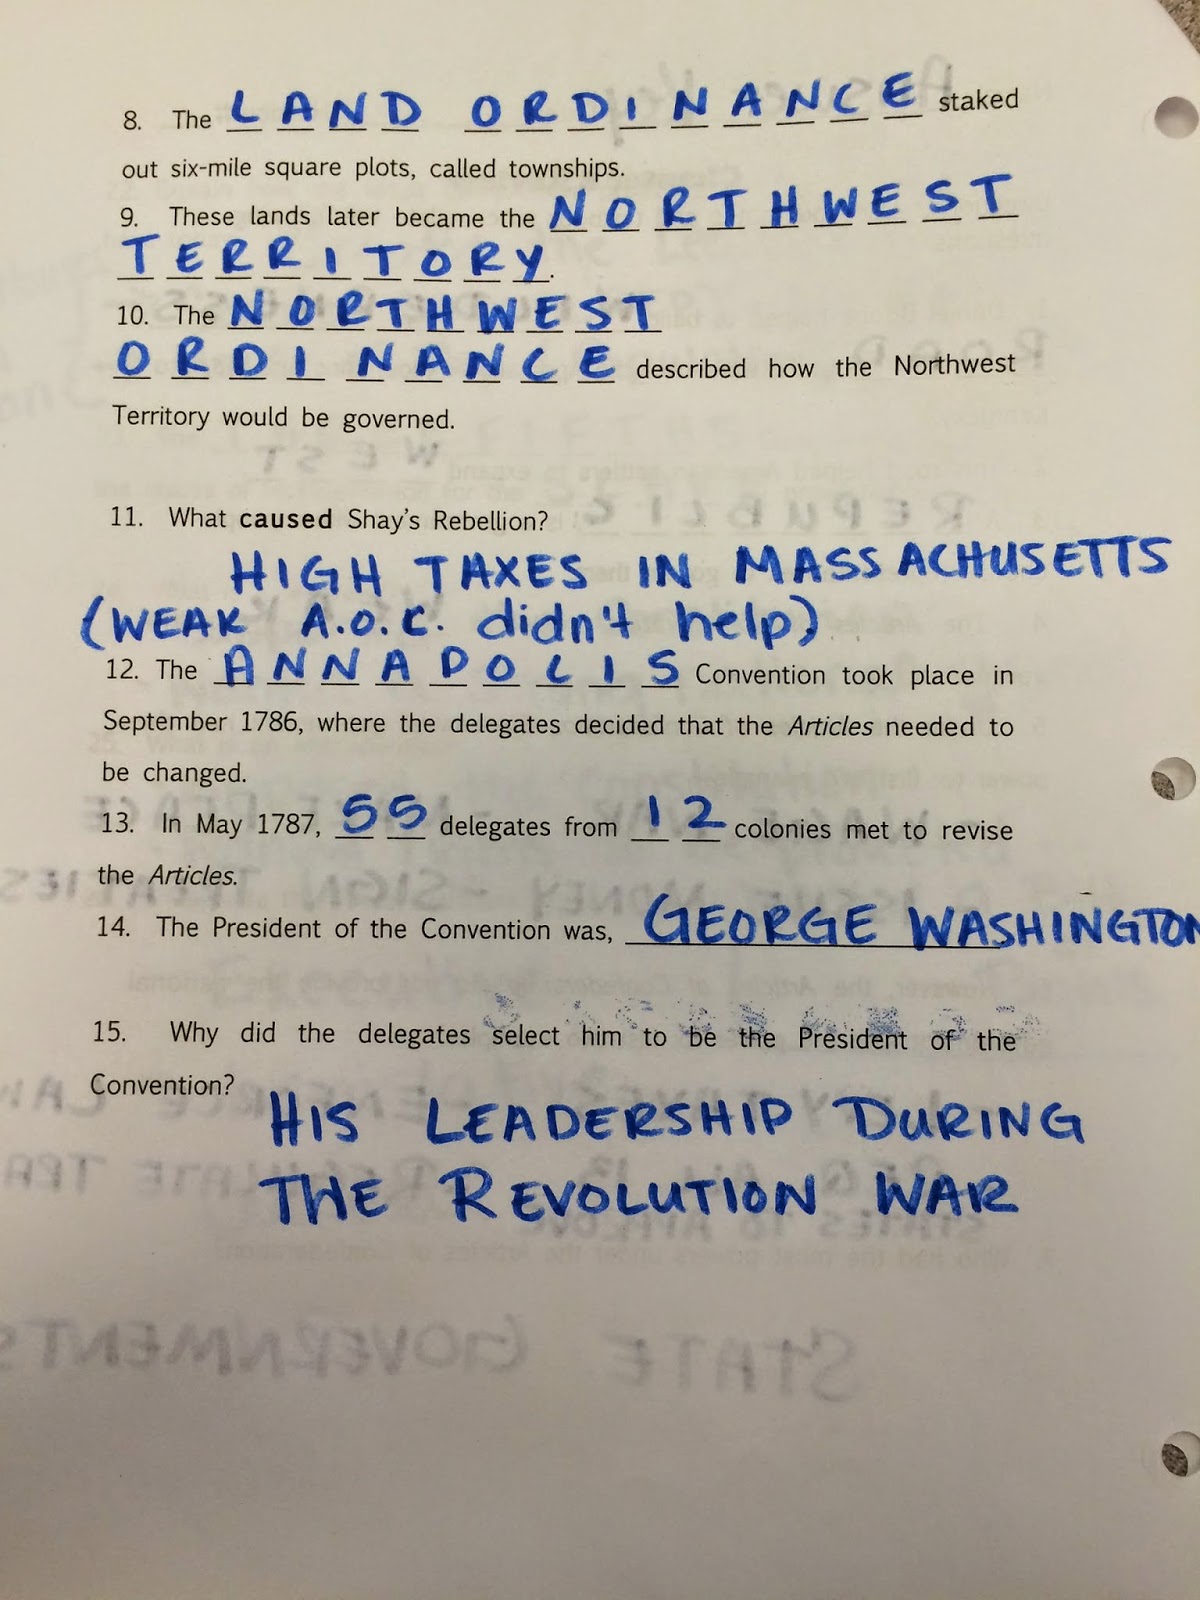 8. The LAND ORDINANCE staked
out six-mile square plots, called townships.
9. These lands later became the NORTHWEST
TERRITORY.
10. The NORTHWEST
ORDINANCE described how the Northwest
Territory would be governed.
11. What caused Shay's Rebellion?
HIGH TAXES IN MASSACHUSETTS
(WEAK A.O.C. didn't help)
12. The ANNAPOLIS Convention took place in
September 1786, where the delegates decided that the Articles needed to
be changed.
13. In May 1787, 55 delegates from 12 colonies met to revise
the Articles.
14. The President of the Convention was, GEORGE WASHINGTON
15. Why did the delegates select him to be the President of the
Convention?
HIS LEADERSHIP DURING
THE REVOLUTION WAR